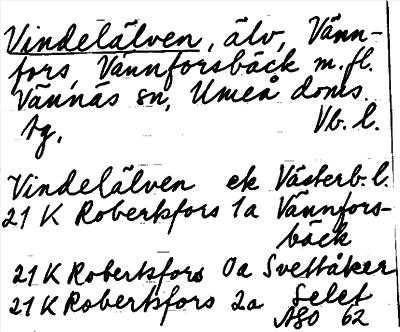 Vindelälven, älv, Vänn-
fors, Vännforsbäck m.fl.
Vännäs sn, Umeå doms.
tg. Vb. l.
Vindelälven ek Västerb. l.
21 K Robertsfors 1a Vännfors-
bäck
21 K Robertsfors 0a Svettåker
21 K Robertsfors 2a Selet
ASO 62